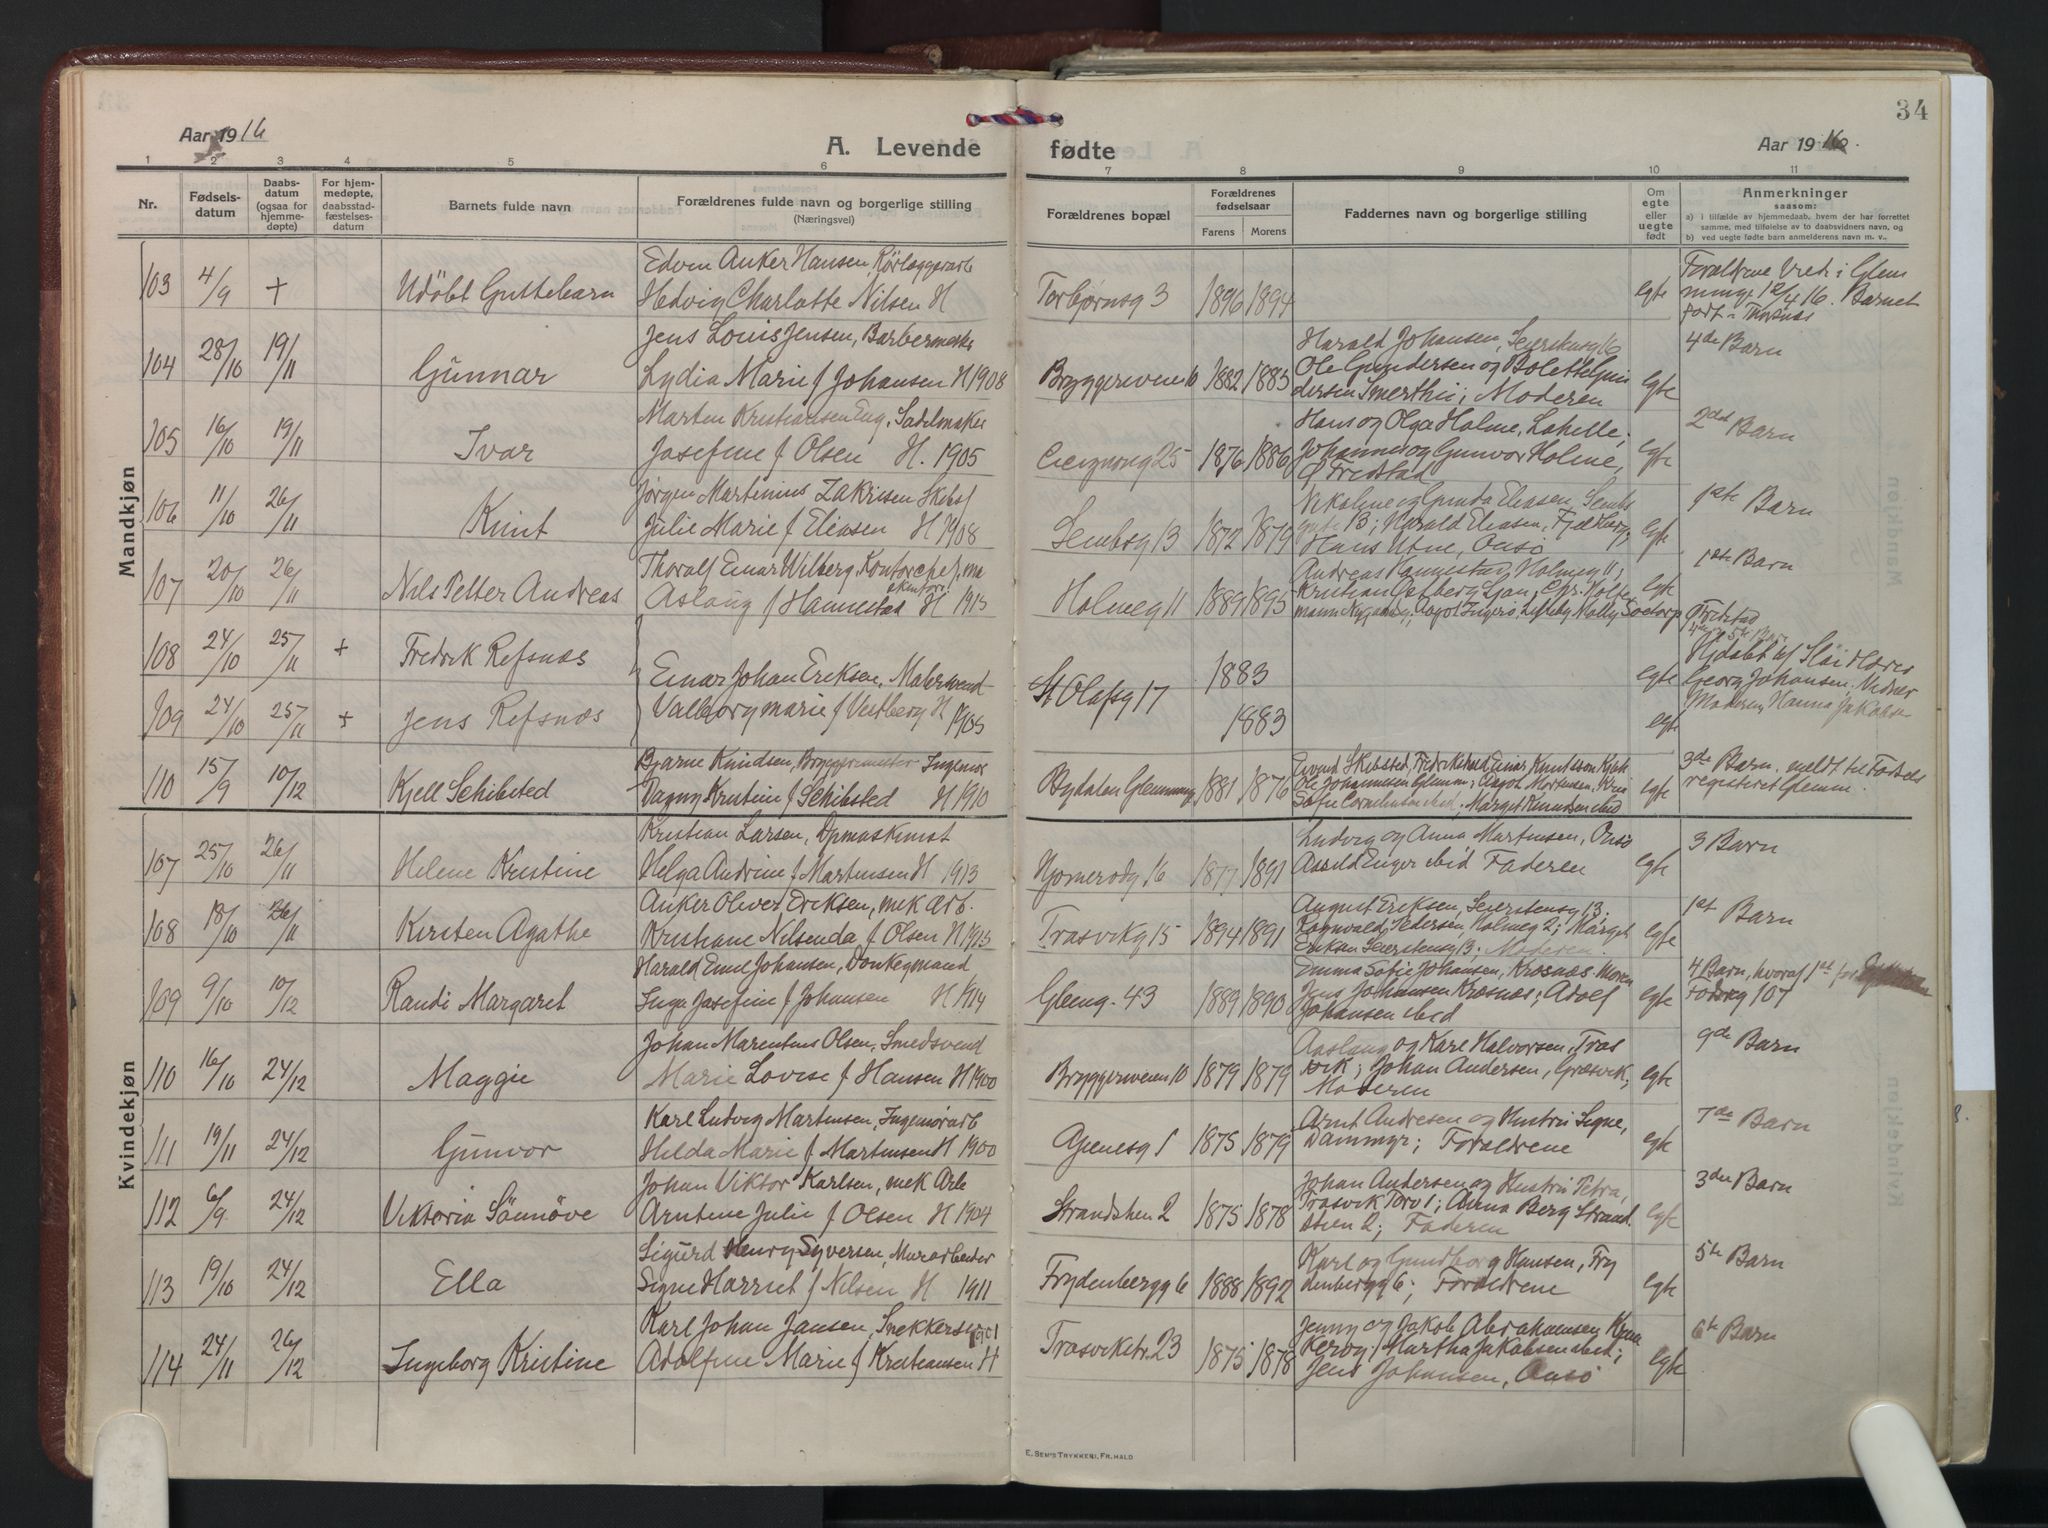 34
Aar 1916
A. Levende fødte
Aar 1916.
1 2 3 4 5 6 7 8 9 10 11
Nr.
Fødsels-
datum
Daabs-
datum
(ogsaa for
hjemme-
døpte)
For hjem-
medøpte,
daabsstad-
fæstelses-
datum
Barnets fulde navn
Forældrenes fulde navn og borgerlige stilling
(Næringsvei)
Forældrenes bopæl
Forældrenes
fødselsaar
Farens Morens
Faddernes navn og borgerlige stilling
Om
egte
eller
uegte
født
Anmerkninger
saasom:
a) i tilfælde av hjemmedaab, hvem der har forrettet
samme, med tilføielse av to daabsvidners navn, og
b) ved uegte fødte barn anmelderens navn m. v..
Mandkjøn
103 4/9 + Udöbt Guttebarn
Edvin Anker Hansen, Rörlæggerarb
Hedvig Charlotte Nilsen H
Torbjørnsg 3 1896 1894 egte
Forældrene viet i Glem
minge 12/4 16. Barnet
født i Thorsnæs
104 28/10 19/11 Gunnar
Jens Louis Jensen, Barbermester
Lydia Marie f Johansen H 1908
Bryggeriveien 10 1882 1883
Harald Johansen, Seiersburg 6
Ole Gundersen og Bolette Gun
dersen Smerthu; Moderen
egte
4de Barn
105 16/10 19/11 Ivar
Marten Kristiansen Eng, Sadelmaker
Josefine f Olsen H. 1905
25 1876 1886
Hans og Olga Holme, Lahelle;
Johannes og Gunvor Holme,
Ø Fredstad
egte
2det Barn
106 11/10 26/11 Knut
Jörgen Martinius Zakrisen Skibsf
Julie Marie f Eliasen H 1908
Sembsg 13 1872 1879
Nikoline og Gunda Eliasen, Sembs
gate 13; Harald Eliasen, Fjeldberg,
Hans Utne, Onsö
egte
1ste Barn
107 20/10 26/11 Nils Petter Andreas
Thoralf Einar Wilberg, Kontorchef, ma
skinfor.
Aslaug f Hannestad H 1915
Holmeg 11 1889 1895
Andreas Hannestad, Holmeg 11;
egte
1ste Barn
Ø Fredstad
108 24/10 25/11 + Fredrik Refsnæs
109 24/10 25/11 + Jens Refsnæs
Einar Johan Eriksen, Malersvend
Valborg Marie f Vestberg H 1905
St Olafsg 17 1883
1883
egte
egte
4de og 5te Barn
Hjdøbt af
Georg Johansen. Vidner
Moderen, Hanna Jakobse
110 15/9 10/12 Kjell Schibsted
Bjarne Knudsen, Bryggerimester Ingeniør
Dagny Kristine f Schibsted H 1910
Bydalen Glemming 1881 1876
Eivind Skibsted, Fredrikshald, Einar Knutsson
Ole Johannessen Glemm; Aagot Mortensen,
Sofie ibid; Margit Knudsen ibid
egte
3de Barn. meldt til Fødsels
registeret Glemm.
Kvindekjøn
107 25/10 26/11 Helene Kristine
Kristian Larsen, Dpmaskinist
Helga Andrine f Martinsen H 1913
Hjomerödg 16 1877 1891
Ludvig og Anna Martinsen, Onsö
Enger ibid Faderen
egte
3 Barn
108 18/10 26/11 Kirsten Agathe
Anker Oliver Eriksen, mek arb.
Kristiane Nilsenda f Olsen H 1915
Trosvikg 15 1894 1891
August Eriksen, Seierstensg 13.
Ragnvald Pedersen, Holmeg 2; Margit
Eriksen Seierstensg 13. Moderen
egte
1st Barn
109 9/10 10/12 Randi Margaret
Harald Emil Johansen, Donkeymand
Inga Josefine f Johansen H 1914
Glemg. 43 1889 1890
Emma Sofie Johansen, Krosnæs Moren
Jens Johansen Krosnæs; Adolf
Johansen ibid
egte
4 Barn, hvoraf 1st for
Fødreg 107
110 16/10 24/12 Maggie
Johan Marentius Olsen, Smedsvend
Marie Lovise f Hansen H 1900
Bryggeriveien 10 1879 1879
Aaslaug og Karl Halvorsen, Tros
vik; Johan Andersen, Græsvik;
Moderen
egte
9de Barn
111 19/11 24/12 Gunvor
Karl Ludvig Martinsen, Ingeniørarb
Hilda Marie f Martinsen H 1900
Gjenesg 1 1875 1879
Arnt Andresen og Hustru Signe,
Dammyr; Forældrene
egte
7de Barn
112 6/9 24/12 Viktoria Sönnöve
Johan Viktor Karlsen, mek Arb
Arntine Julie f Olsen H 1904
Strandstien 2 1875 1878
Johan Andersen og Hustru Petra,
Trosvik Torv 1; Anna Berg Strand
stien 2; Faderen
egte
3die Barn
113 19/10 24/12 Ella
Sigurd Henry Syversen, Murarbeider
Signe Harriet f Nilsen H 1911
Frydenbergg 6 1888 1892
Karl og Gundborg Hansen, Fry
denbergg 6; Forældrene
egte
5te Barn
114 24/11 26/12 Ingeborg Kristine
Karl Johan Jansen, Snekkersv
Adolfine Marie f Kristiansen H 1901
Trosvikstr. 23 1875 1878
Jenny og Jakob Abrahamsen
Martha Jakobsen ibid;
Jens Johansen, Onsö
egte
6te Barn
E. SEM'S TRYKKERI, FR.HALD